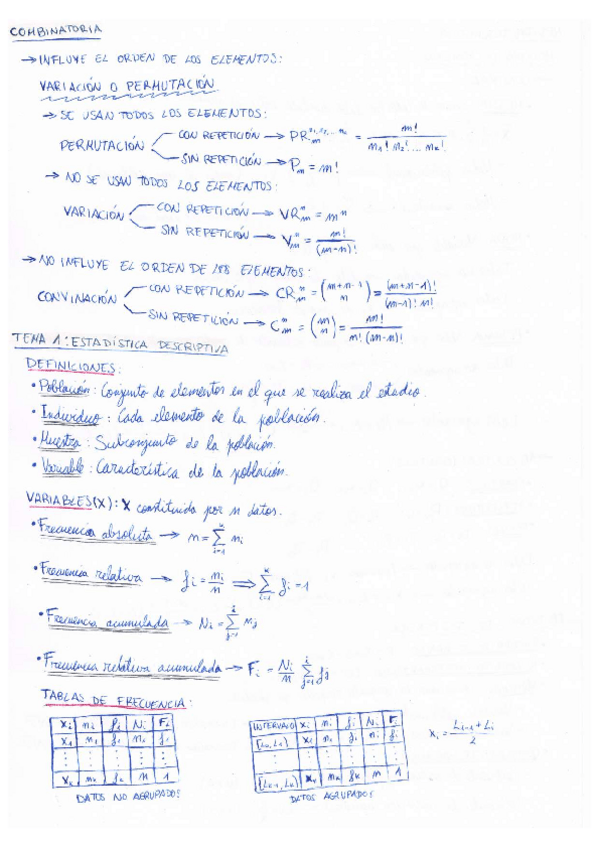 COMBINATORIA
→ INFLUYE EL ORDEN DE LOS ELEMENTOS:
VARIACIÓN O PERMUTACIÓN
→ SE USAN TODOS LOS ELEMENTOS:
PERMUTACIÓN
CON REPETICIÓN → PR_m^{n_1, n_2, ... n_k} = m! / (m_1! m_2! ... m_k!)
SIN REPETICIÓN → P_m = m!
→ NO SE USAN TODOS LOS ELEMENTOS:
VARIACIÓN
CON REPETICIÓN → VR_m^n = m^n
SIN REPETICIÓN → V_m^n = m! / (m-n)!
→ NO INFLUYE EL ORDEN DE LOS ELEMENTOS:
CONVINACIÓN
CON REPETICIÓN → CR_m^n = (m+n-1 / n) = (m+n-1)! / (m-1)! n!
SIN REPETICIÓN → C_m^n = (m / n) = m! / n! (m-n)!
TEMA 1: ESTADÍSTICA DESCRIPTIVA
DEFINICIONES:
• Población: Conjunto de elementos en el que se realiza el estudio.
• Individuo: Cada elemento de la población.
• Muestra: Subconjunto de la población.
• Variable: Característica de la población.
VARIABLES (X): X constituida por n datos.
• Frecuencia absoluta → n = Σ_{i=1}^k n_i
• Frecuencia relativa → f_i = n_i / n ⟹ Σ_{i=1}^k f_i = 1
• Frecuencia acumulada → N_i = Σ_{j=1}^i n_j
• Frecuencia relativa acumulada → F_i = N_i / n Σ_{j=1}^i f_j
TABLAS DE FRECUENCIA:
x_i n_i f_i N_i F_i
x_1 n_1 f_1 n_1 f_1
⋮ ⋮ ⋮ ⋮ ⋮
x_k n_k f_k n 1
DATOS NO AGRUPADOS
INTERVALO x_i n_i f_i N_i F_i
[L_0, L_1) x_1 n_1 f_1 n_1 f_1
⋮ ⋮ ⋮ ⋮ ⋮ ⋮
[L_{k-1}, L_k) x_k n_k f_k n 1
DATOS AGRUPADOS
x_i = (L_{i-1} + L_i) / 2